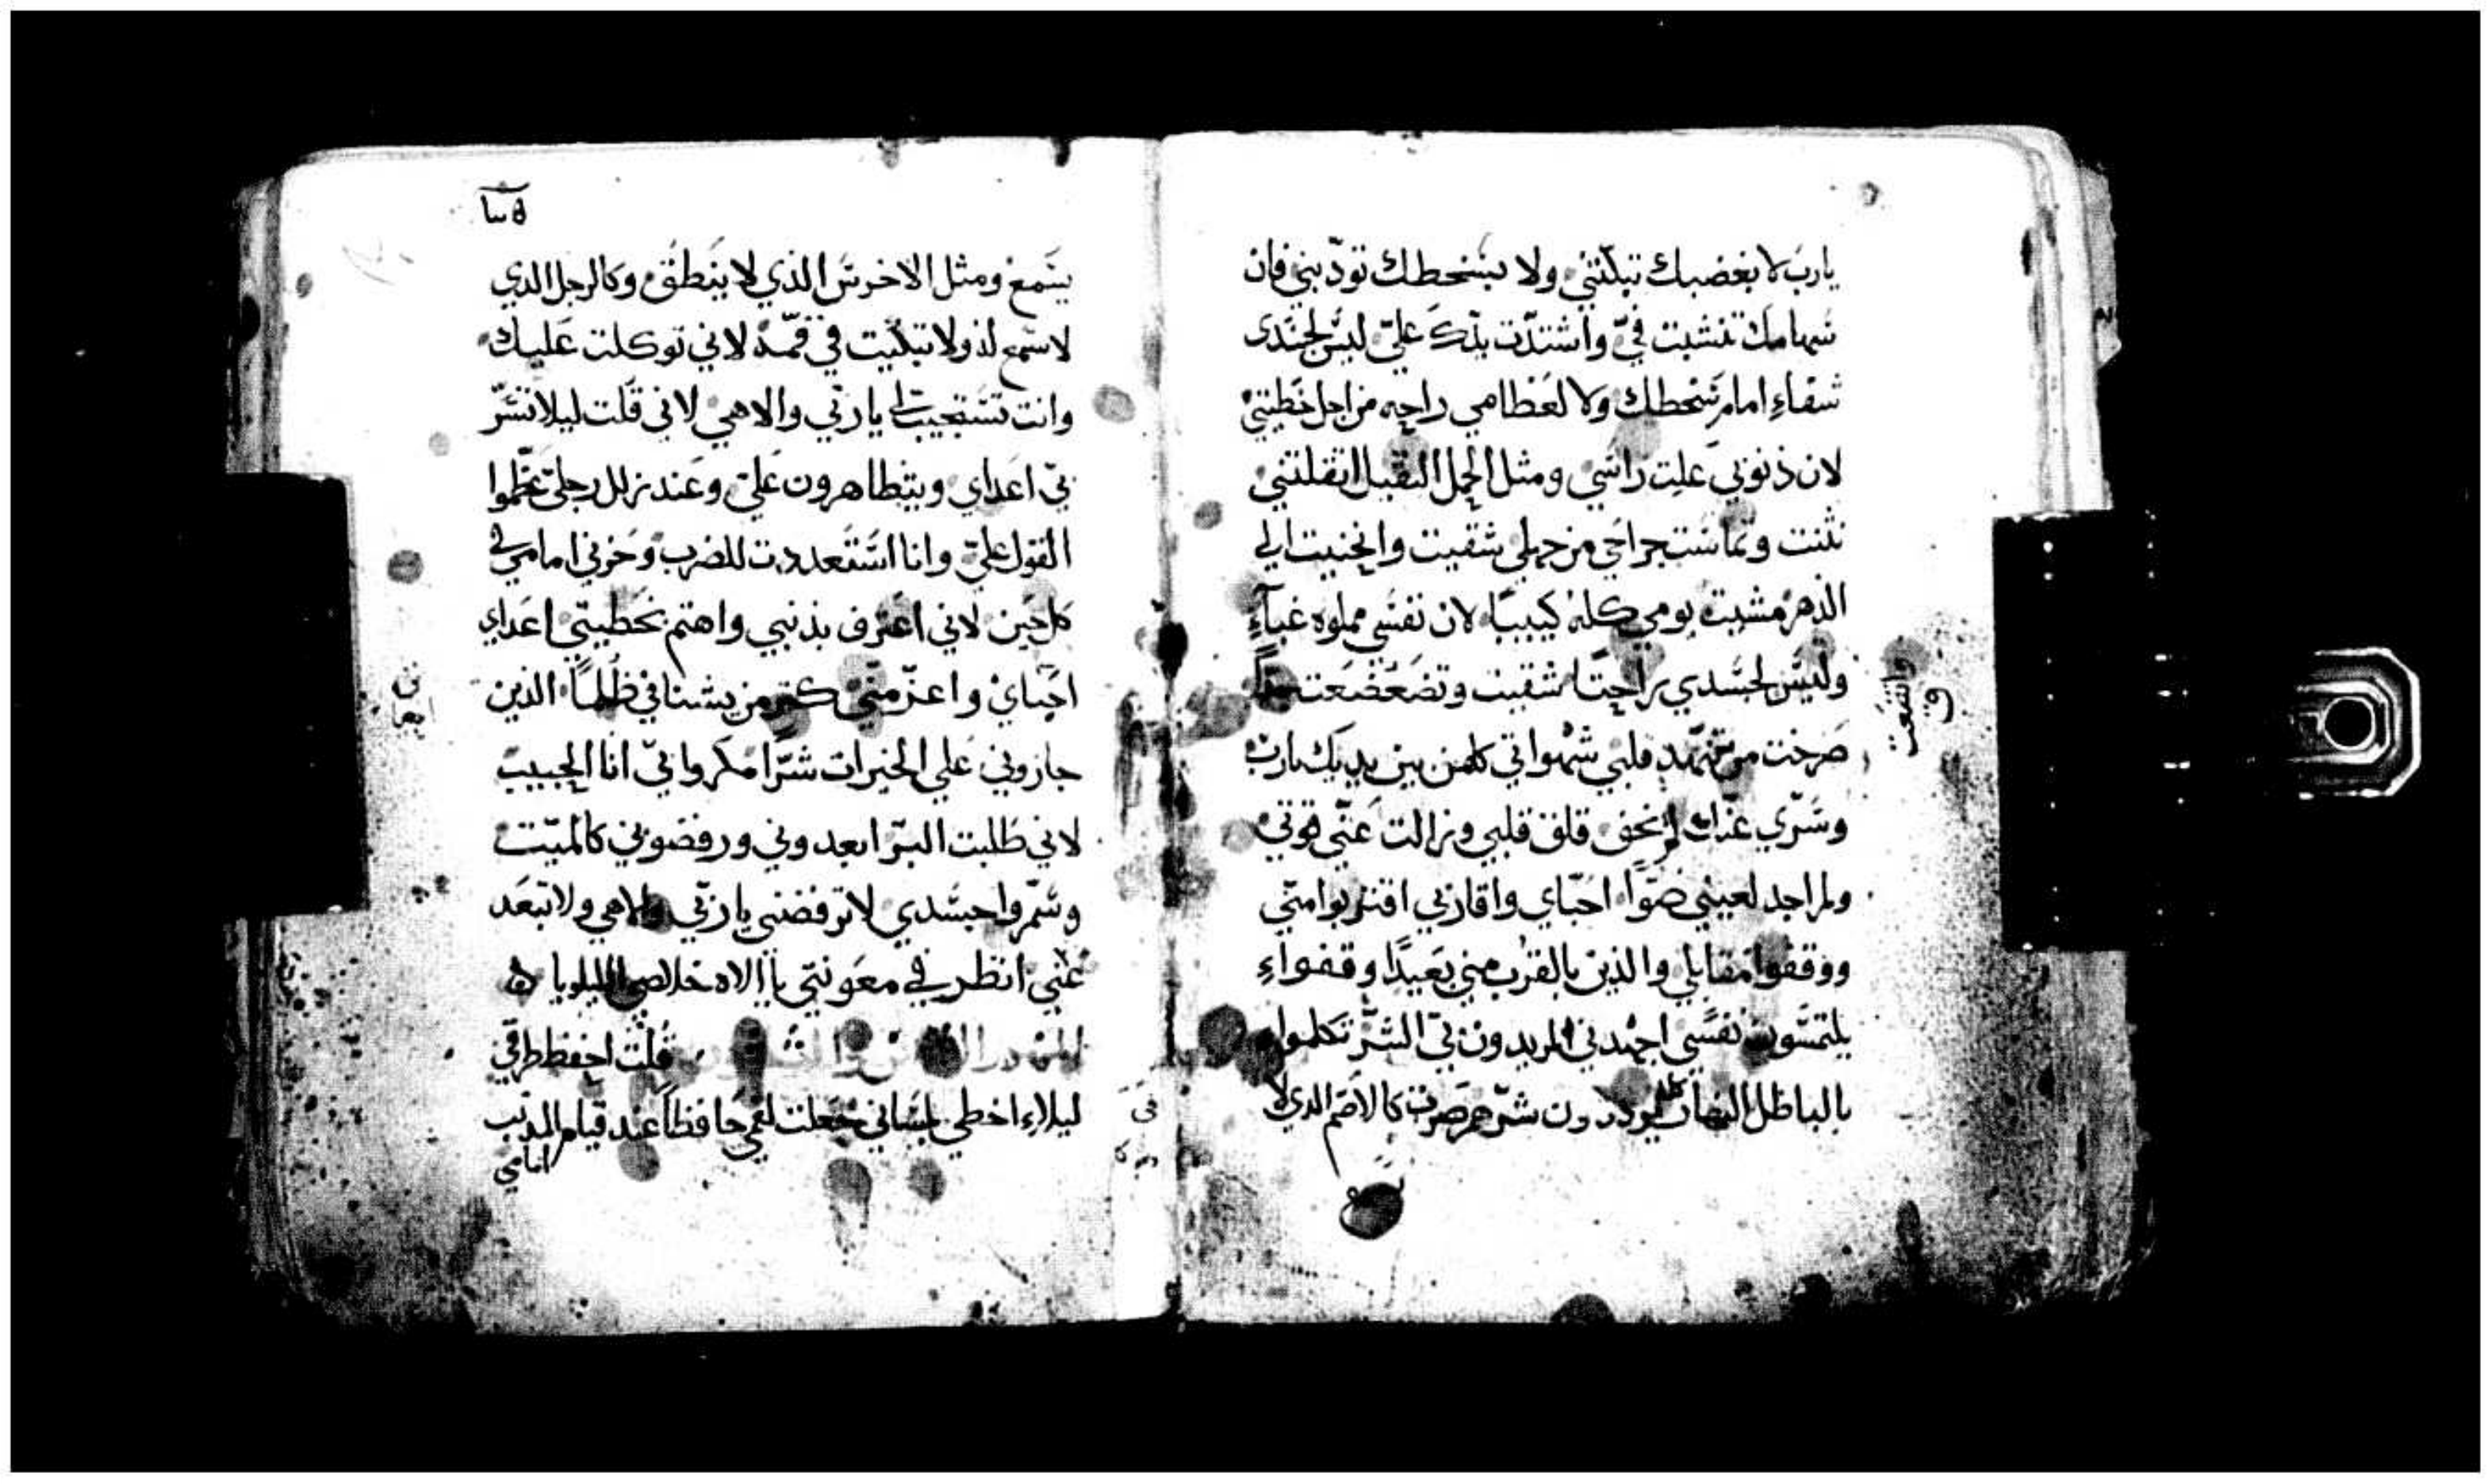 يارب لا بغضبك تبكتني ولا بسخطك تودبني فان
سهامك نشبت فيّ واشتدّت يدك عليّ ليس لجسدي
شفاء امام سخطك ولا لعظامي راحه من اجل خطيتي
لان ذنوبي علت راسي ومثل الحمل الثقيل اثقلتني
نتنت وتماست جراحي من جهلي شقيت وانحنيت الي
الدهر مشيت يومي كله كييبًا لان نفسي مملوه غباء
وليس لجسدي راحتًا شقيت وتضعضعت جدًّا
واتضعت
صرخت من تنهّد قلبي شهواتي كلهن بين يديك يارب
وسرّي عنك لم يخفى قلق قلبي وزالت عنّي قوتي
ولم اجد لعيني ضوًا احبّاي واقاربي اقتربوا منّي
ووقفوا مقابلي والذين بالقرب مني بعيدًا وقفواء
يلتمسون نفسي اجهدني المريدون بيّ الشرّ تكلموا
بالباطل النهار كله يودون شرّهم صرت كالاصم الدي لا
يسمع
يسمع ومثل الاخرس الذي لا ينطق وكالرجل الدي
لا سمع له ولا تبكيت في فمّه لاني توكلت عليك
وانت تستجيب لي يا ربّي والاهي لاني قلت ليلا تسرّ
بي اعداي ويتظاهرون عليّ وعند زلل رجليّ عظّموا
القول عليّ وانا استعددت للضرب وحزني امامي في
كل حين لاني اعترف بذنبي واهتم بخطيتي اعداي
احياي واعزّ منّي كثر من يشناني ظلمًا الذين
جازوني علي الخيرات شرًّا مكروا بيّ انا الحبيب
لاني طلبت البرّ ابعدوني ورفضوني كالميّت
وسمّروا جسدي لا ترفضني يا ربّي والاهي ولا تبعد
عني انظر في معونتي يا الاه خلاصي الليلويا
المزمور الثامن والثلثون قلت احفظ طرقي
ليلاء اخطي بلساني جعلت لفمي حافظًا عند قيام المذنب
امامي